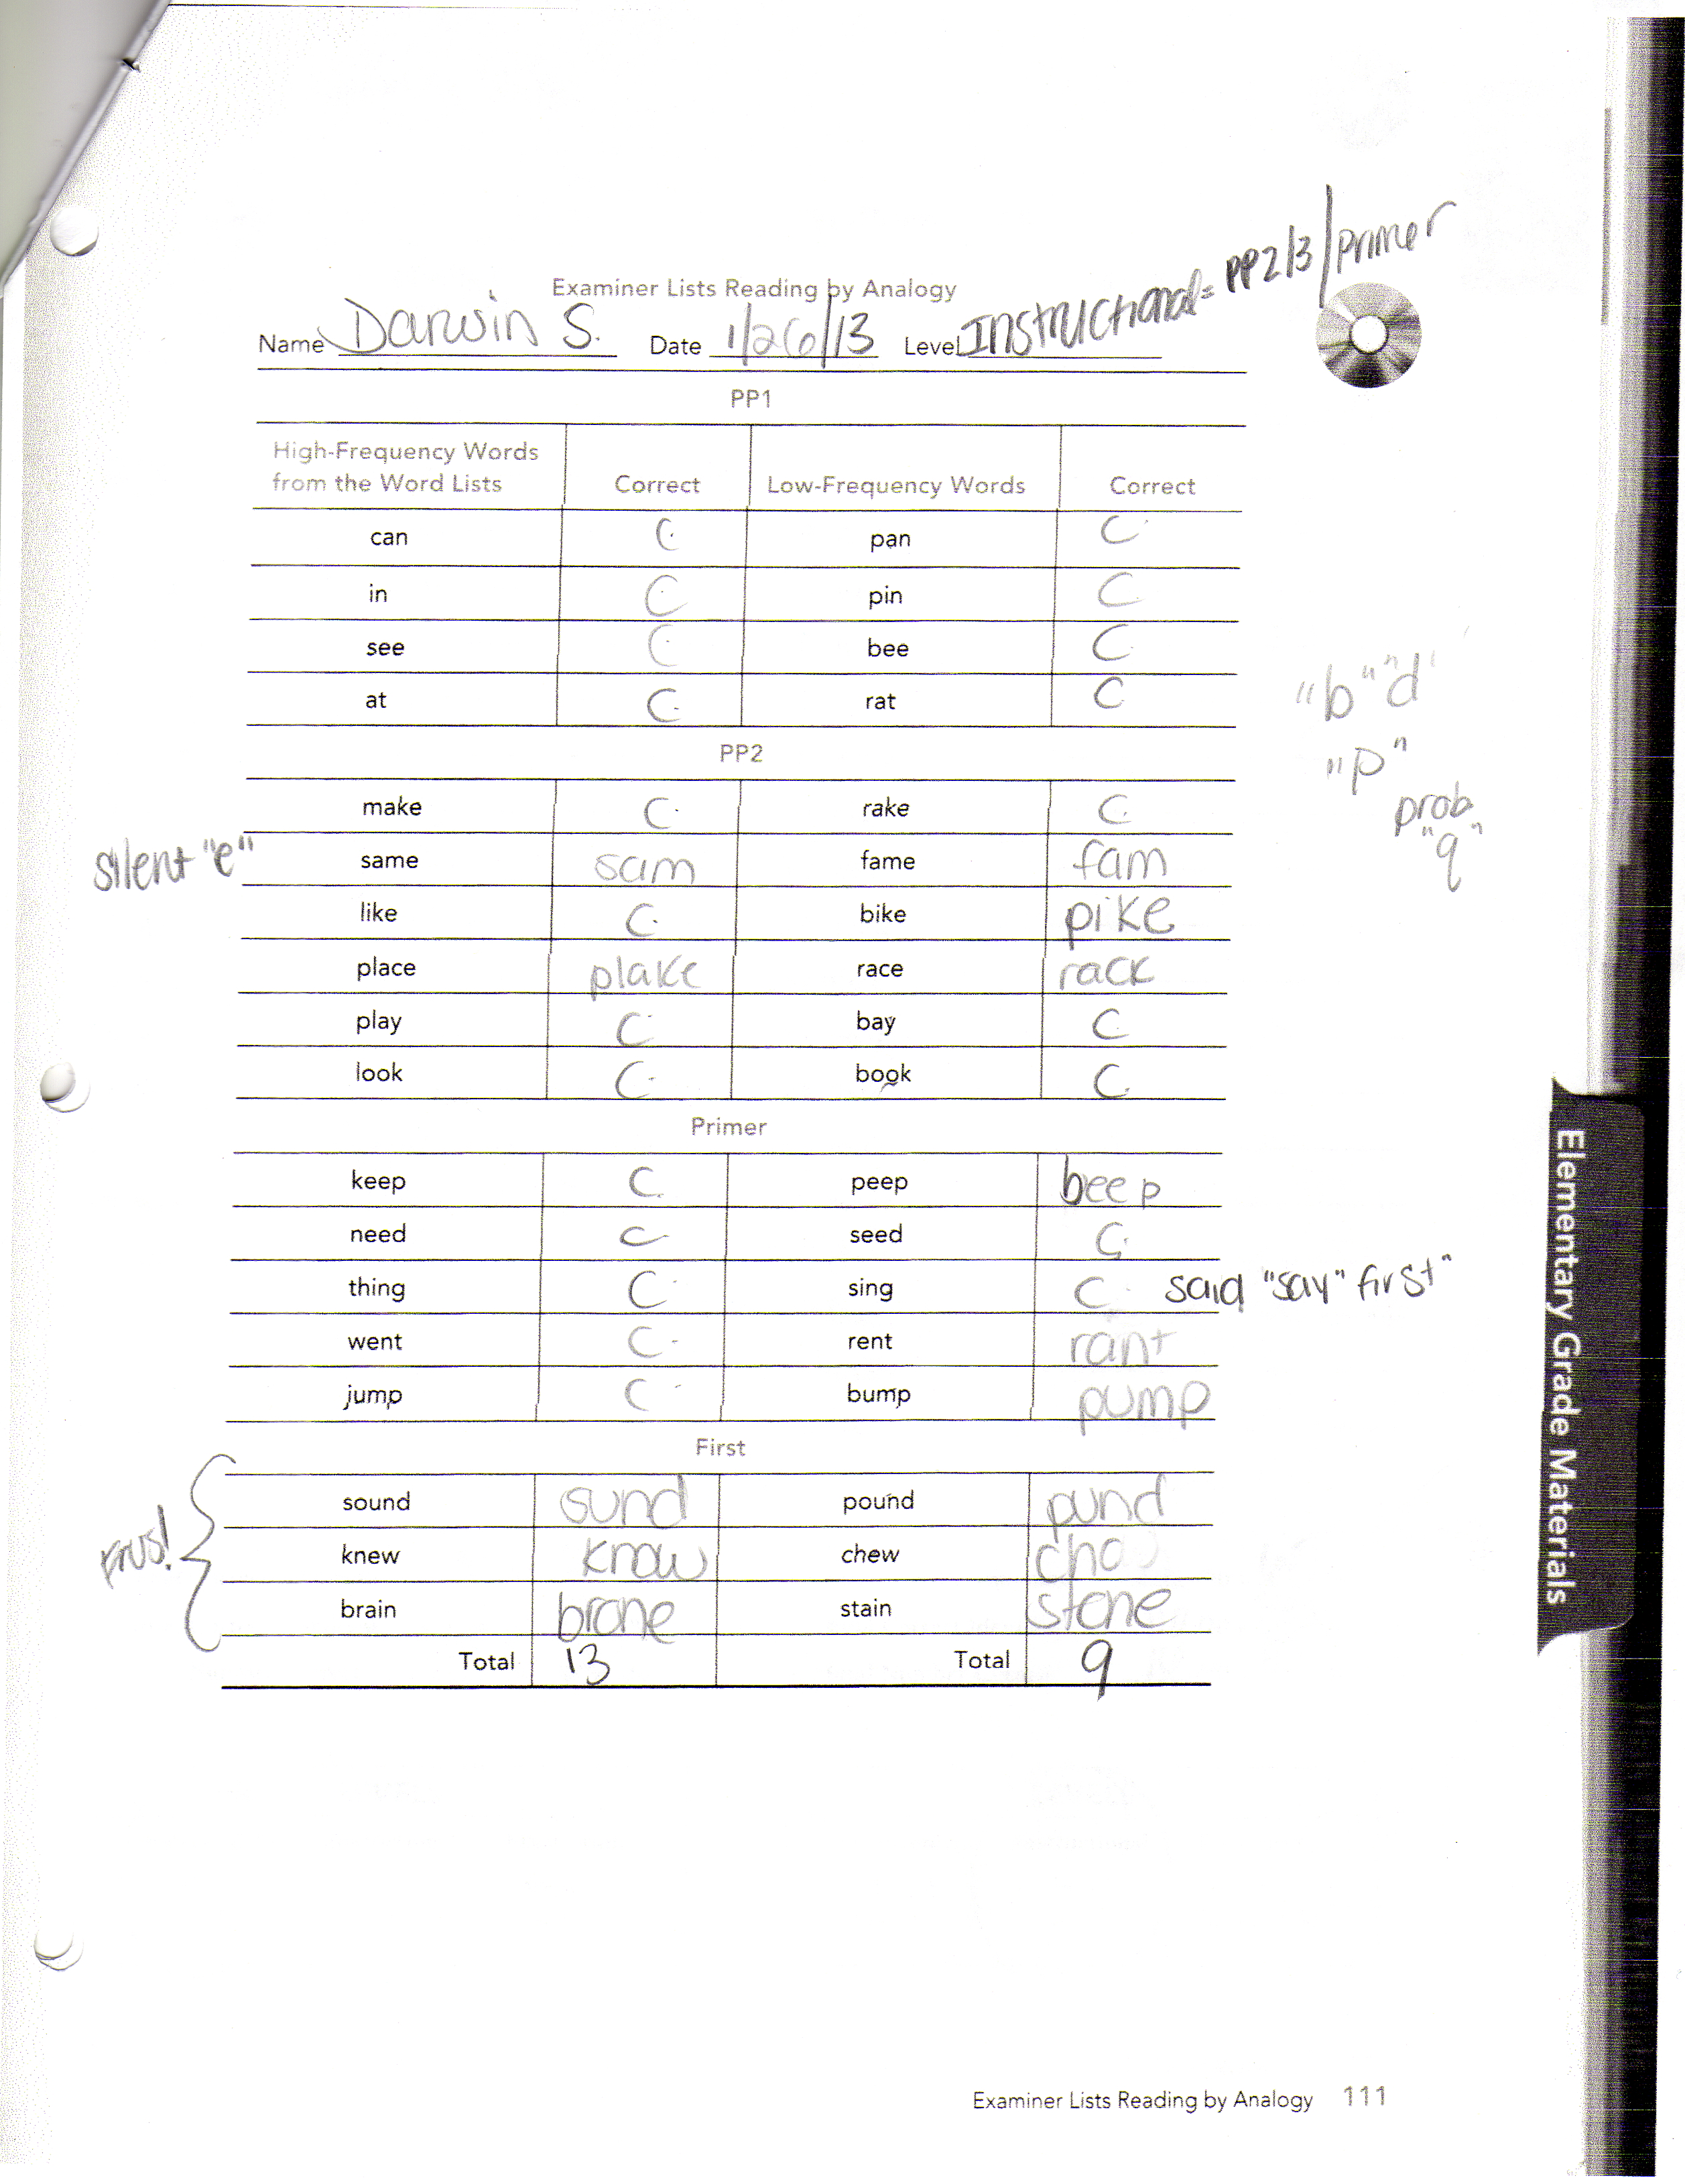 Instructional = PP2/3/primer
Examiner Lists Reading by Analogy
Name Darwin S. Date 1/26/13 Level
PP1
High-Frequency Words from the Word Lists Correct Low-Frequency Words Correct
can C pan C
in C pin C
see C bee C
at C rat C
"b" "d"
"p"
prob
"q"
PP2
make C rake C
silent "e" same sam fame fam
like C bike pike
place plake race rack
play C bay C
look C book C
Primer
keep C peep beep
need C seed C
thing C sing C said "say" first"
went C rent rant
jump C bump pump
First
sound sund pound pund
frus! knew know chew cho
brain brone stain stone
Total 13 Total 9
Elementary Grade Materials
Examiner Lists Reading by Analogy 111